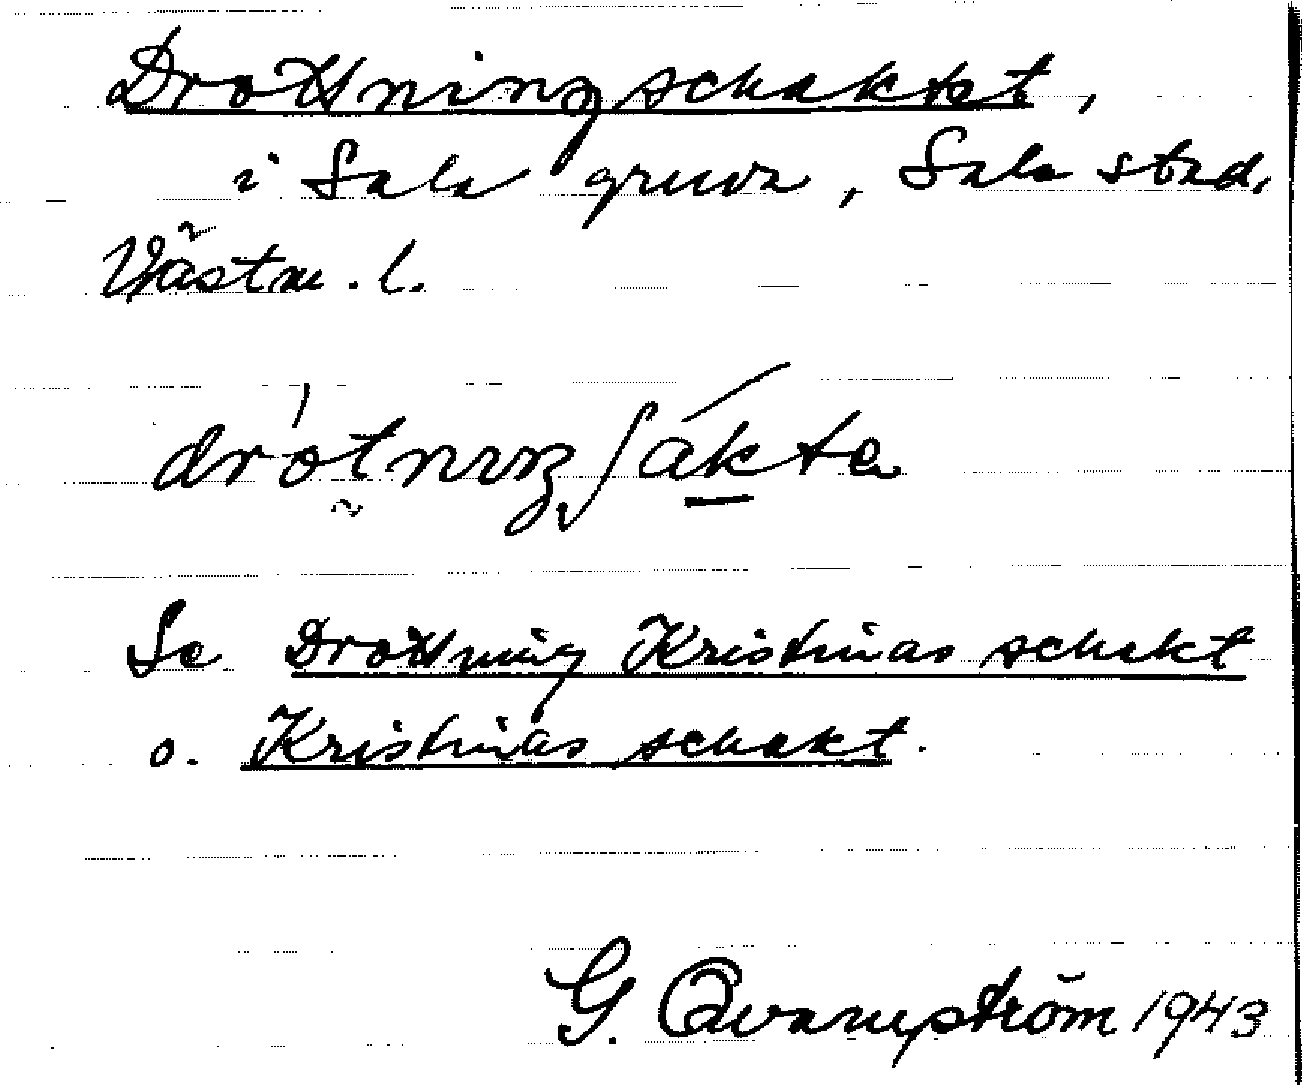 Drottningschaktet,
i Sala gruva, Sala stad,
Västm. l.
drótnɪŋʃákta
Se Drottning Kristinas schakt
o. Kristinas schakt.
G. Qvarnström 1943